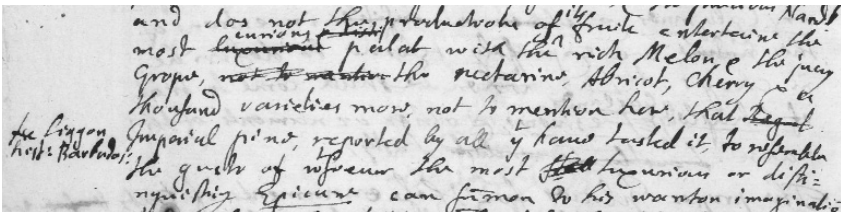 and does not the productione of its fruite entertaine the
most curious palat with the rich Melon, the juicy
Grape, the nectarine, Abricot, Cherry & a
thousand varieties more, not to mention here, that
see Liggon
hist: Barbados:
Imperial pine, reported by all yt have tasted it, to resemble
the gusto of whatever the most luxurious or disti=
nguishing Epicure can summon to his wanton imaginatio